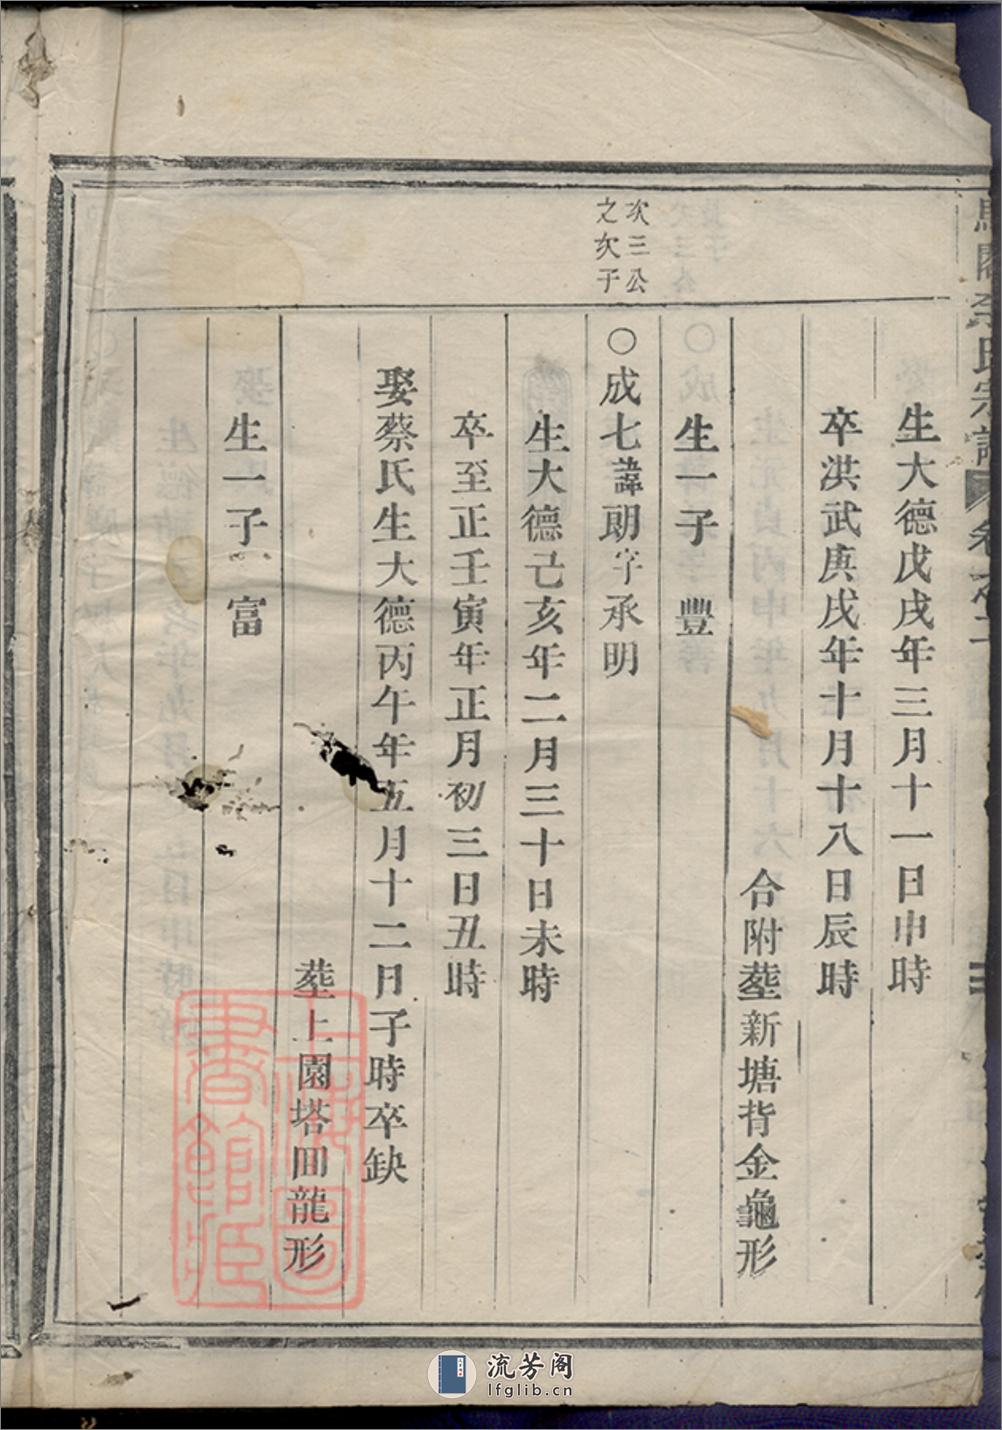 氏宗譜
生大德戊戌年三月十一日申時
卒洪武庚戌年十月十八日辰時
合附塟新塘背金龜形
生一子 豐
次三公
之次子
○成七諱朗字承明
生大德己亥年二月三十日未時
卒至正壬寅年正月初三日丑時
娶蔡氏生大德丙午年五月十二日子時卒缺
塟上園塔囬龍形
生一子 富
上海圖書館藏
流芳阁
lfglib.cn